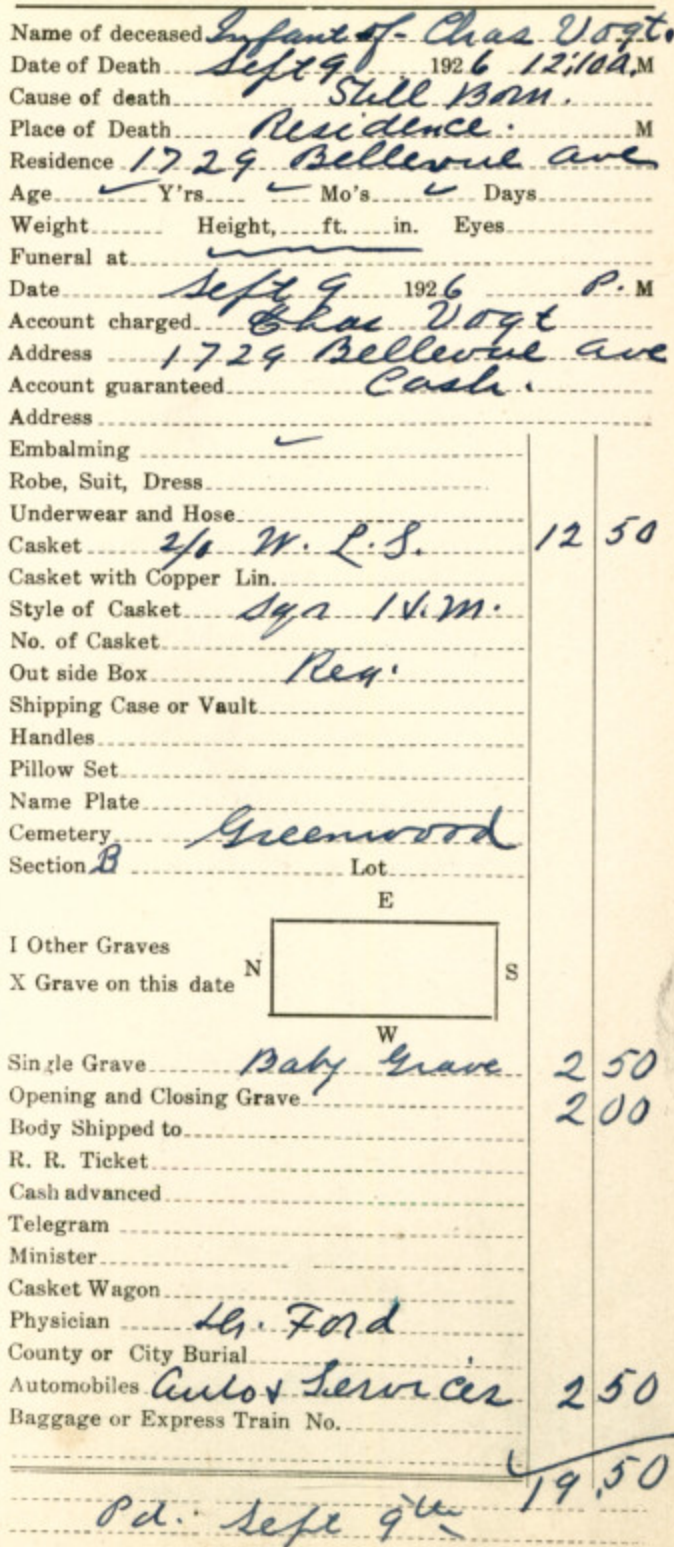 Name of deceased Infant of - Chas Vogt.
Date of Death Sept 9 1926 12:10 a. M
Cause of death Still Born.
Place of Death Residence. M
Residence 1729 Bellevue Ave
Age Y'rs Mo's Days
Weight Height, ft. in. Eyes
Funeral at
Date Sept 9 1926 P. M
Account charged Chas Vogt
Address 1729 Bellevue Ave
Account guaranteed Cash.
Address
Embalming
Robe, Suit, Dress
Underwear and Hose
Casket 2/0 W. L. S. 12 50
Casket with Copper Lin.
Style of Casket Sqr
No. of Casket
Out side Box Reg.
Shipping Case or Vault
Handles
Pillow Set
Name Plate
Cemetery Greenwood
Section B Lot
E
I Other Graves
X Grave on this date N S
W
Single Grave Baby Grave 2 50
Opening and Closing Grave 2 00
Body Shipped to
R. R. Ticket
Cash advanced
Telegram
Minister
Casket Wagon
Physician Dr. Ford
County or City Burial
Automobiles Auto & Services 2 50
Baggage or Express Train No.
19.50
Pd. Sept 9th